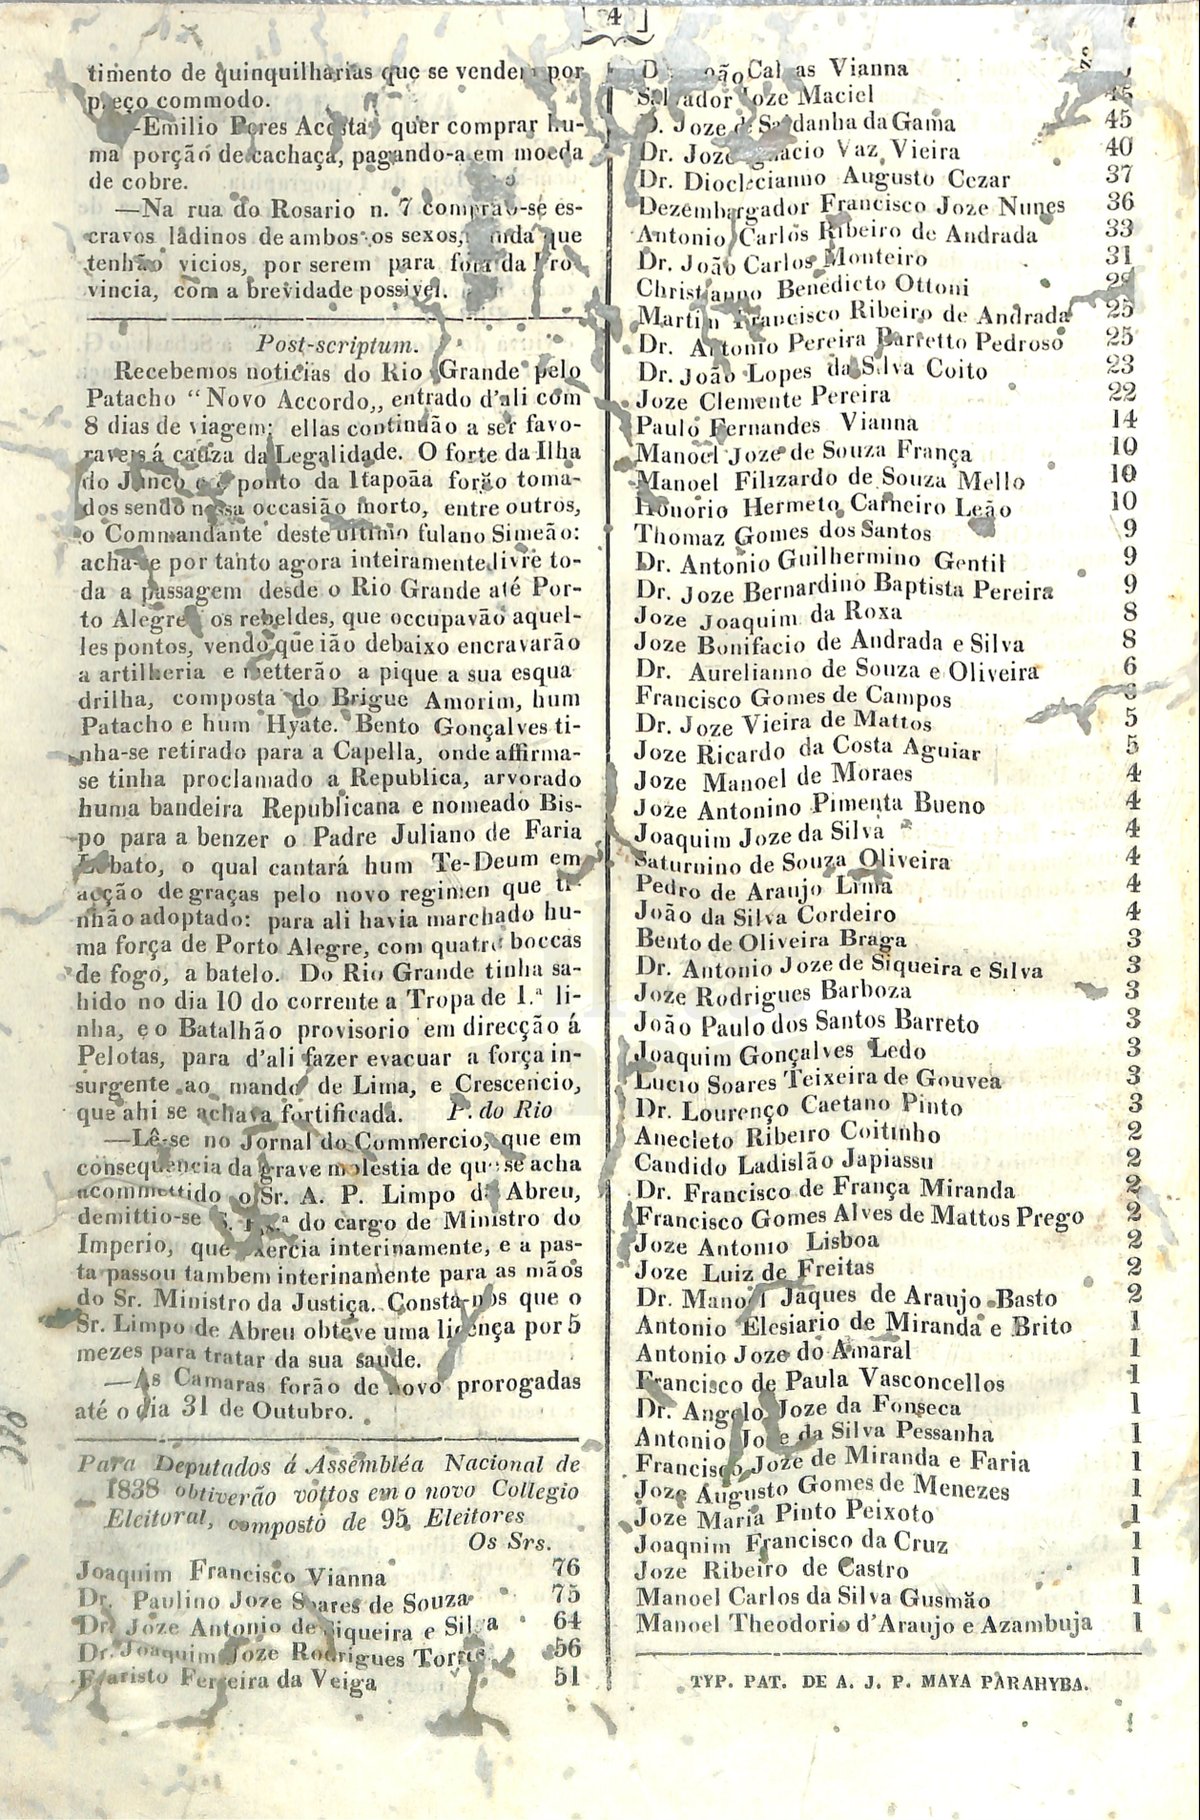 4
timento de quinquilharias que se vendem por
preço commodo.
—Emilio Peres Acosta, quer comprar hu-
ma porção de cachaça, pagando-a em moeda
de cobre.
—Na rua do Rosario n. 7 comprão-se es-
cravos ládinos de ambos os sexos, que
tenhão vicios, por serem para fora da Pro
vincia, com a brevidade possivel.
Post-scriptum.
Recebemos noticias do Rio Grande pelo
Patacho "Novo Accordo,, entrado d'ali com
8 dias de viagem; ellas continuão a ser favo-
raveis á cauza da Legalidade. O forte da Ilha
do Junco e o ponto da Itapoãa forão toma-
dos sendo nessa occasião morto, entre outros,
o Commandante deste ultimo fulano Simeão:
acha-se por tanto agora inteiramente livre to-
da a passagem desde o Rio Grande até Por-
to Alegre os rebeldes, que occupavão aquel-
les pontos, vendo que ião debaixo encravarão
a artilheria e metterão a pique a sua esqua
drilha, composta do Brigue Amorim, hum
Patacho e hum Hyate. Bento Gonçalves ti-
nha-se retirado para a Capella, onde affirma-
se tinha proclamado a Republica, arvorado
huma bandeira Republicana e nomeado Bis-
po para a benzer o Padre Juliano de Faria
Lobato, o qual cantará hum Te-Deum em
acção de graças pelo novo regimen que ti-
nhão adoptado: para ali havia marchado hu-
ma força de Porto Alegre, com quatro boccas
de fogo, a batelo. Do Rio Grande tinha sa-
hido no dia 10 do corrente a Tropa de 1.ª li-
nha, e o Batalhão provisorio em direcção á
Pelotas, para d'ali fazer evacuar a força in-
surgente ao mando de Lima, e Crescencio,
que ahi se achava fortificada. P. do Rio
—Lê-se no Jornal do Commercio, que em
consequencia da grave molestia de que se acha
acommettido o Sr. A. P. Limpo de Abreu,
demittio-se S. Ex.ª do cargo de Ministro do
Imperio, que exercia interinamente, e a pas-
ta passou tambem interinamente para as mãos
do Sr. Ministro da Justiça. Consta-nos que o
Sr. Limpo de Abreu obteve uma licença por 5
mezes para tratar da sua saude.
—As Camaras forão de novo prorogadas
até o dia 31 de Outubro.
Para Deputados á Assembléa Nacional de
1838 obtiverão vottos em o novo Collegio
Eleitoral, composto de 95 Eleitores
Os Srs.
Joaquim Francisco Vianna 76
Dr. Paulino Joze Soares de Souza 75
Dr. Joze Antonio de Siqueira e Silva 64
Dr. Joaquim Joze Rodrigues Torres 56
Evaristo Ferreira da Veiga 51
João Caldas Vianna
Salvador Joze Maciel 45
D. Joze de Saldanha da Gama 45
Dr. Joze Ignacio Vaz Vieira 40
Dr. Dioclecianno Augusto Cezar 37
Dezembargador Francisco Joze Nunes 36
Antonio Carlos Ribeiro de Andrada 33
Dr. João Carlos Monteiro 31
Christianno Benedicto Ottoni 28
Martim Francisco Ribeiro de Andrada 25
Dr. Antonio Pereira Barretto Pedroso 25
Dr. João Lopes da Silva Coito 23
Joze Clemente Pereira 22
Paulo Fernandes Vianna 14
Manoel Joze de Souza França 10
Manoel Filizardo de Souza Mello 10
Honorio Hermeto Carneiro Leão 10
Thomaz Gomes dos Santos 9
Dr. Antonio Guilhermino Gentil 9
Dr. Joze Bernardino Baptista Pereira 9
Joze Joaquim da Roxa 8
Joze Bonifacio de Andrada e Silva 8
Dr. Aurelianno de Souza e Oliveira 6
Francisco Gomes de Campos
Dr. Joze Vieira de Mattos 5
Joze Ricardo da Costa Aguiar 5
Joze Manoel de Moraes 4
Joze Antonino Pimenta Bueno 4
Joaquim Joze da Silva 4
Saturnino de Souza Oliveira 4
Pedro de Araujo Lima 4
João da Silva Cordeiro 4
Bento de Oliveira Braga 3
Dr. Antonio Joze de Siqueira e Silva 3
Joze Rodrigues Barboza 3
João Paulo dos Santos Barreto 3
Joaquim Gonçalves Ledo 3
Lucio Soares Teixeira de Gouvea 3
Dr. Lourenço Caetano Pinto 3
Anecleto Ribeiro Coitinho 2
Candido Ladislão Japiassu 2
Dr. Francisco de França Miranda 2
Francisco Gomes Alves de Mattos Prego 2
Joze Antonio Lisboa 2
Joze Luiz de Freitas 2
Dr. Manoel Jaques de Araujo Basto 2
Antonio Elesiario de Miranda e Brito 1
Antonio Joze do Amaral 1
Francisco de Paula Vasconcellos 1
Dr. Angelo Joze da Fonseca 1
Antonio Joze da Silva Pessanha 1
Francisco Joze de Miranda e Faria 1
Joze Augusto Gomes de Menezes 1
Joze Maria Pinto Peixoto 1
Joaqnim Francisco da Cruz 1
Joze Ribeiro de Castro 1
Manoel Carlos da Silva Gusmão 1
Manoel Theodorio d'Araujo e Azambuja 1
TYP. PAT. DE A. J. P. MAYA PARAHYBA.